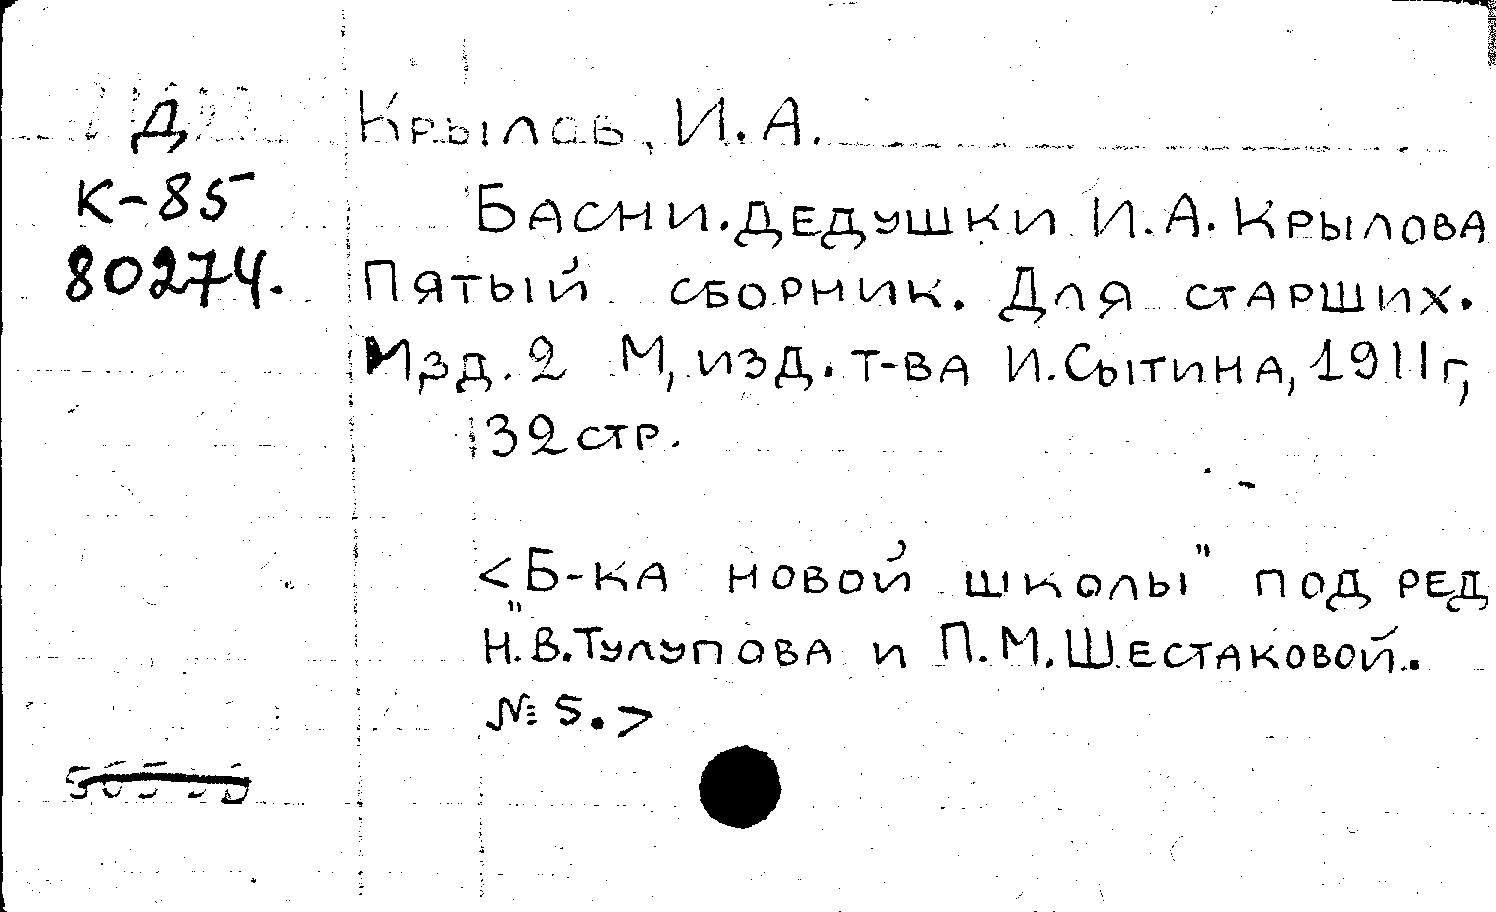 Д
К-85
80274.
Крылов, И.А.
Басни. дедушки И.А. Крылова
Пятый сборник. Для старших.
Изд. 2 М, изд. т-ва И. Сытина, 1911 г,
32 стр.
<Б-ка "новой школы" под ред
Н.В. Тулупова и П.М. Шестаковой.
№ 5.>